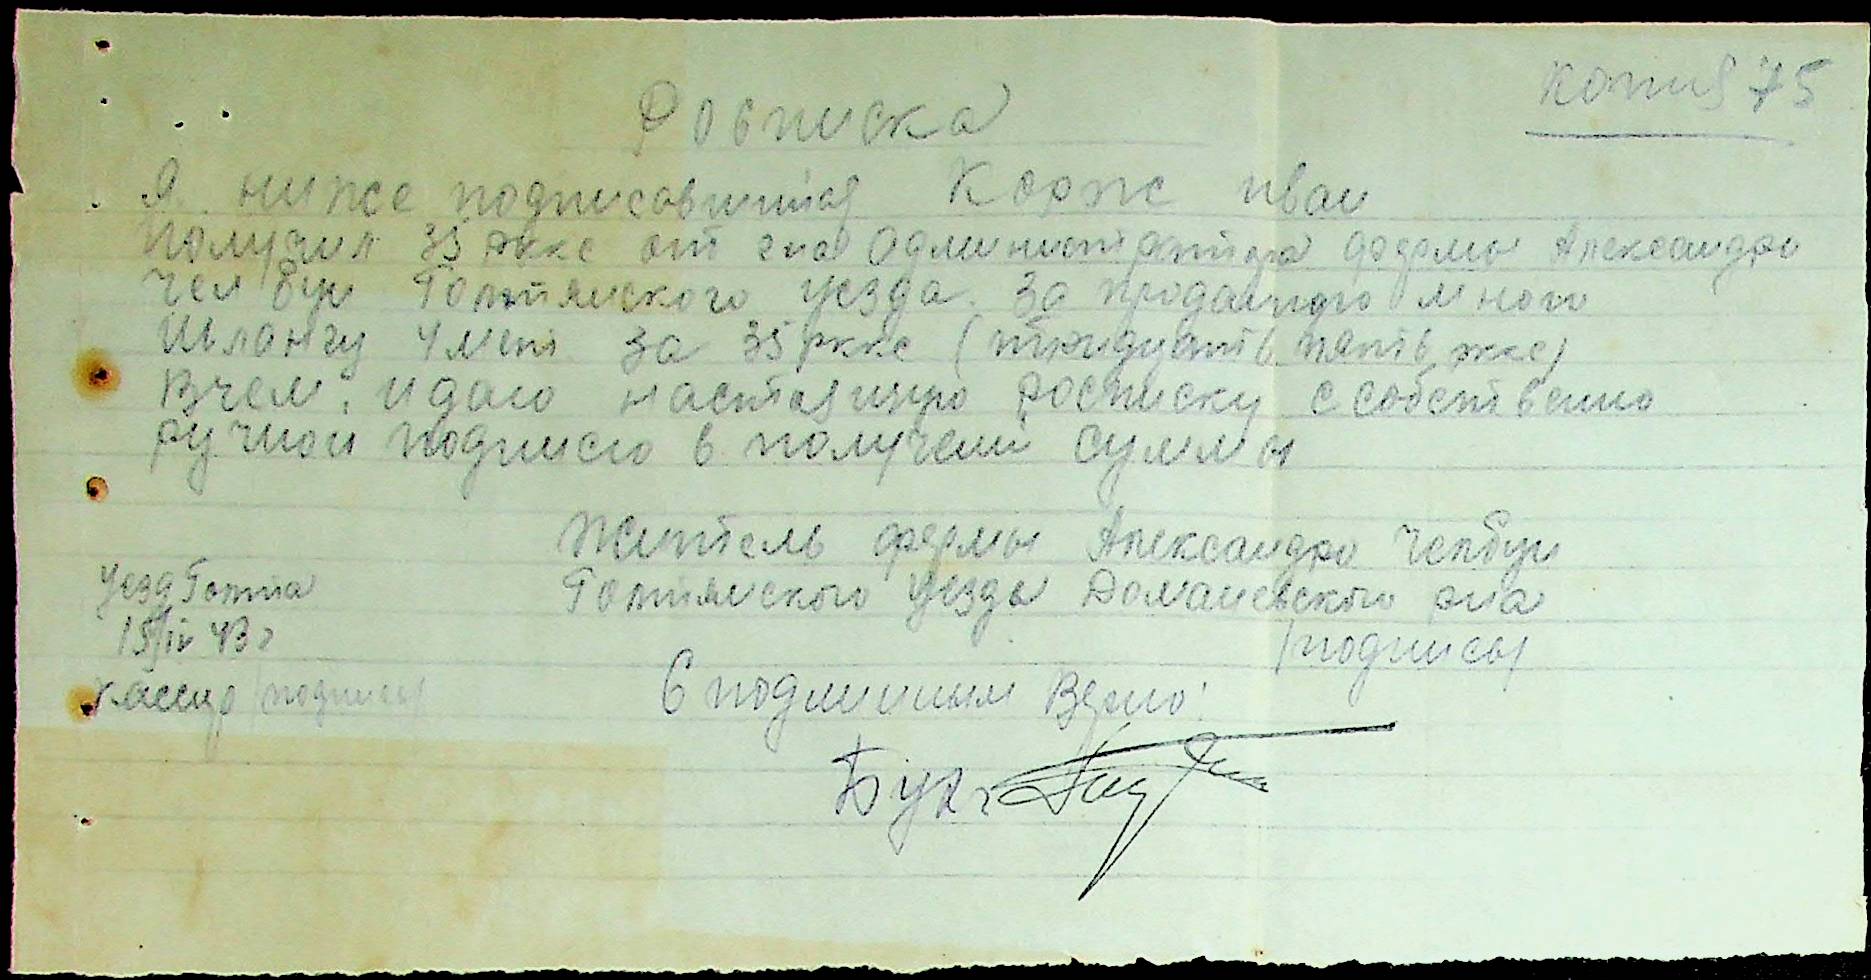 Копия 75
Росписка
Я ниже подписавшийся Корж Иван
Получил 35 рккс от г-на Администратора фермы Александро
Челбун Голтянского уезда. За проданного много
Шлангу 4 мет за 35 рккс (тридцать пять ркке)
Вчем и даю настоящую росписку с собственно
ручной подписю в получени суммы
Житель фермы Александро Челбун
Голтянского уезда Доманевского р-на
/подпись/
Уезд Голта
15/IV 43 г
Кассир /подпись/
С подлинным Верно:
Бухг